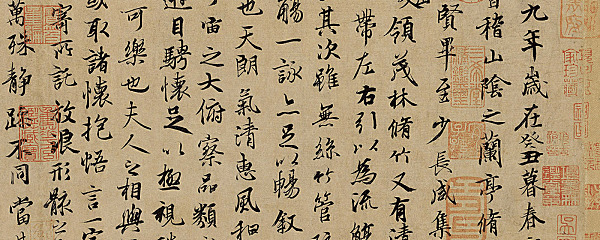 九年歲在癸丑暮春
會稽山陰之蘭亭脩
賢畢至少長咸集
領茂林脩竹又有清
帶左右引以為流觴
其次雖無絲竹管
觴一詠亦足以暢敘
也天朗氣清惠風和
宙之大俯察品類
遊目騁懷足以極視
可樂也夫人之相與
或取諸懷抱悟言一室
寄所託放浪形骸之
萬殊靜躁不同當